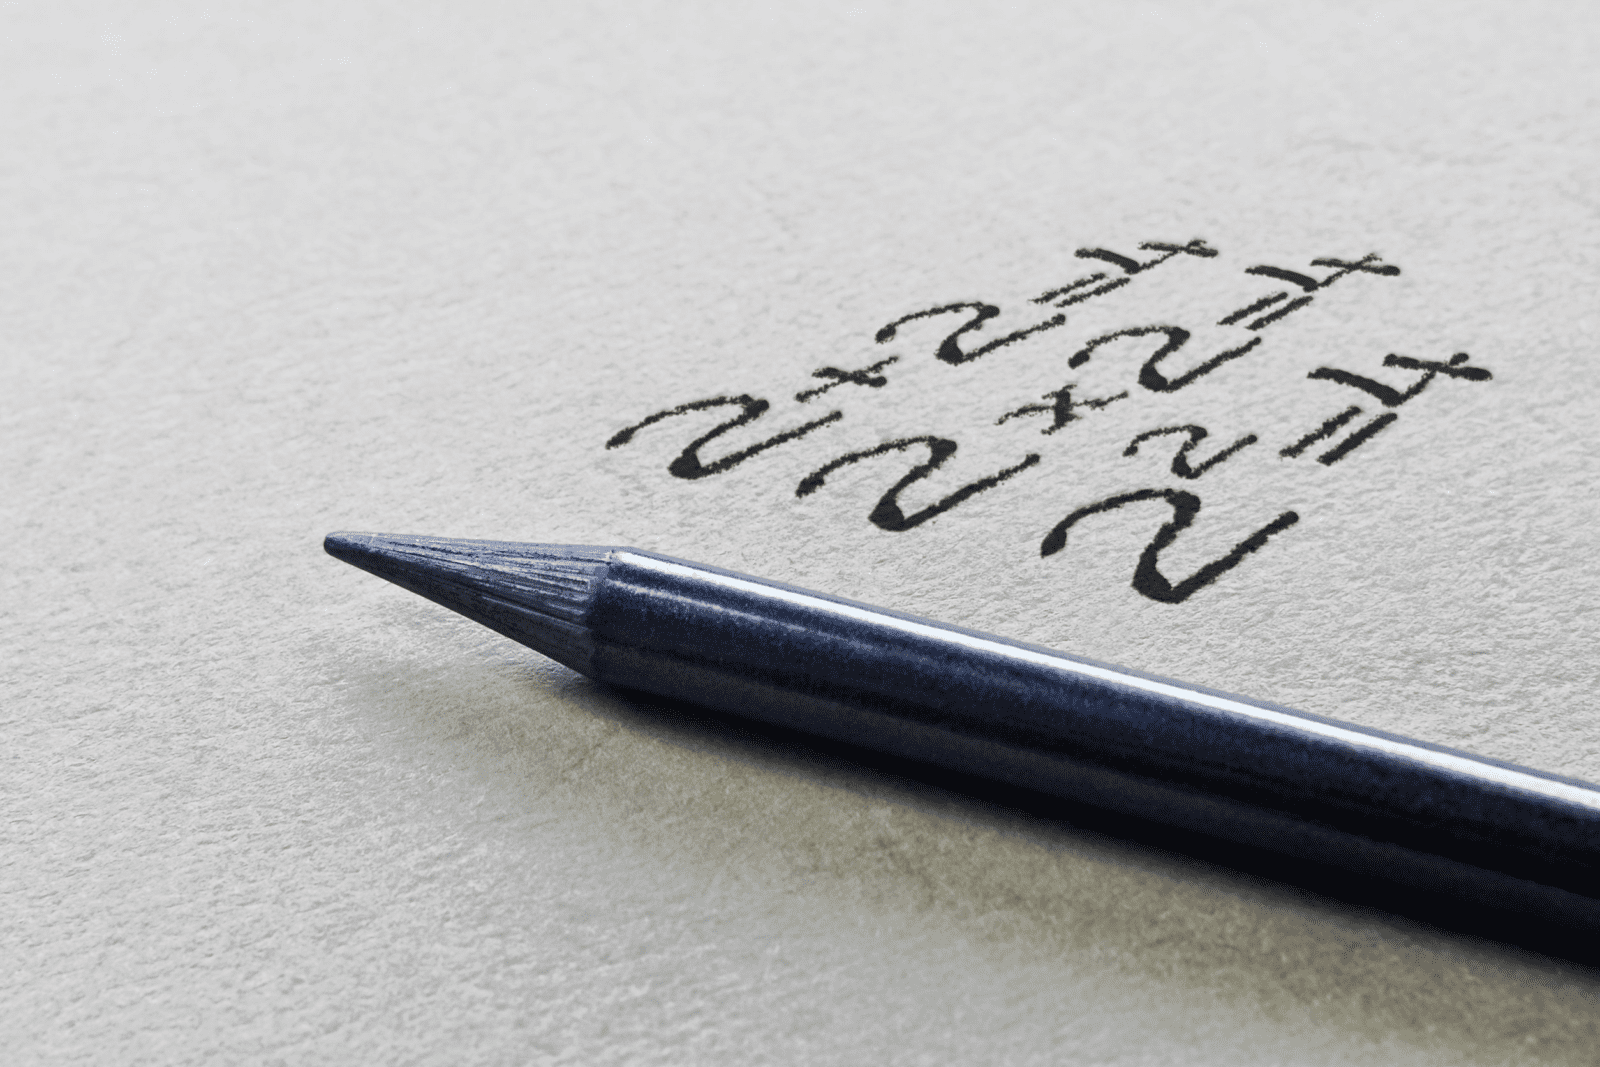 2+2=4
2×2=4
2²=4